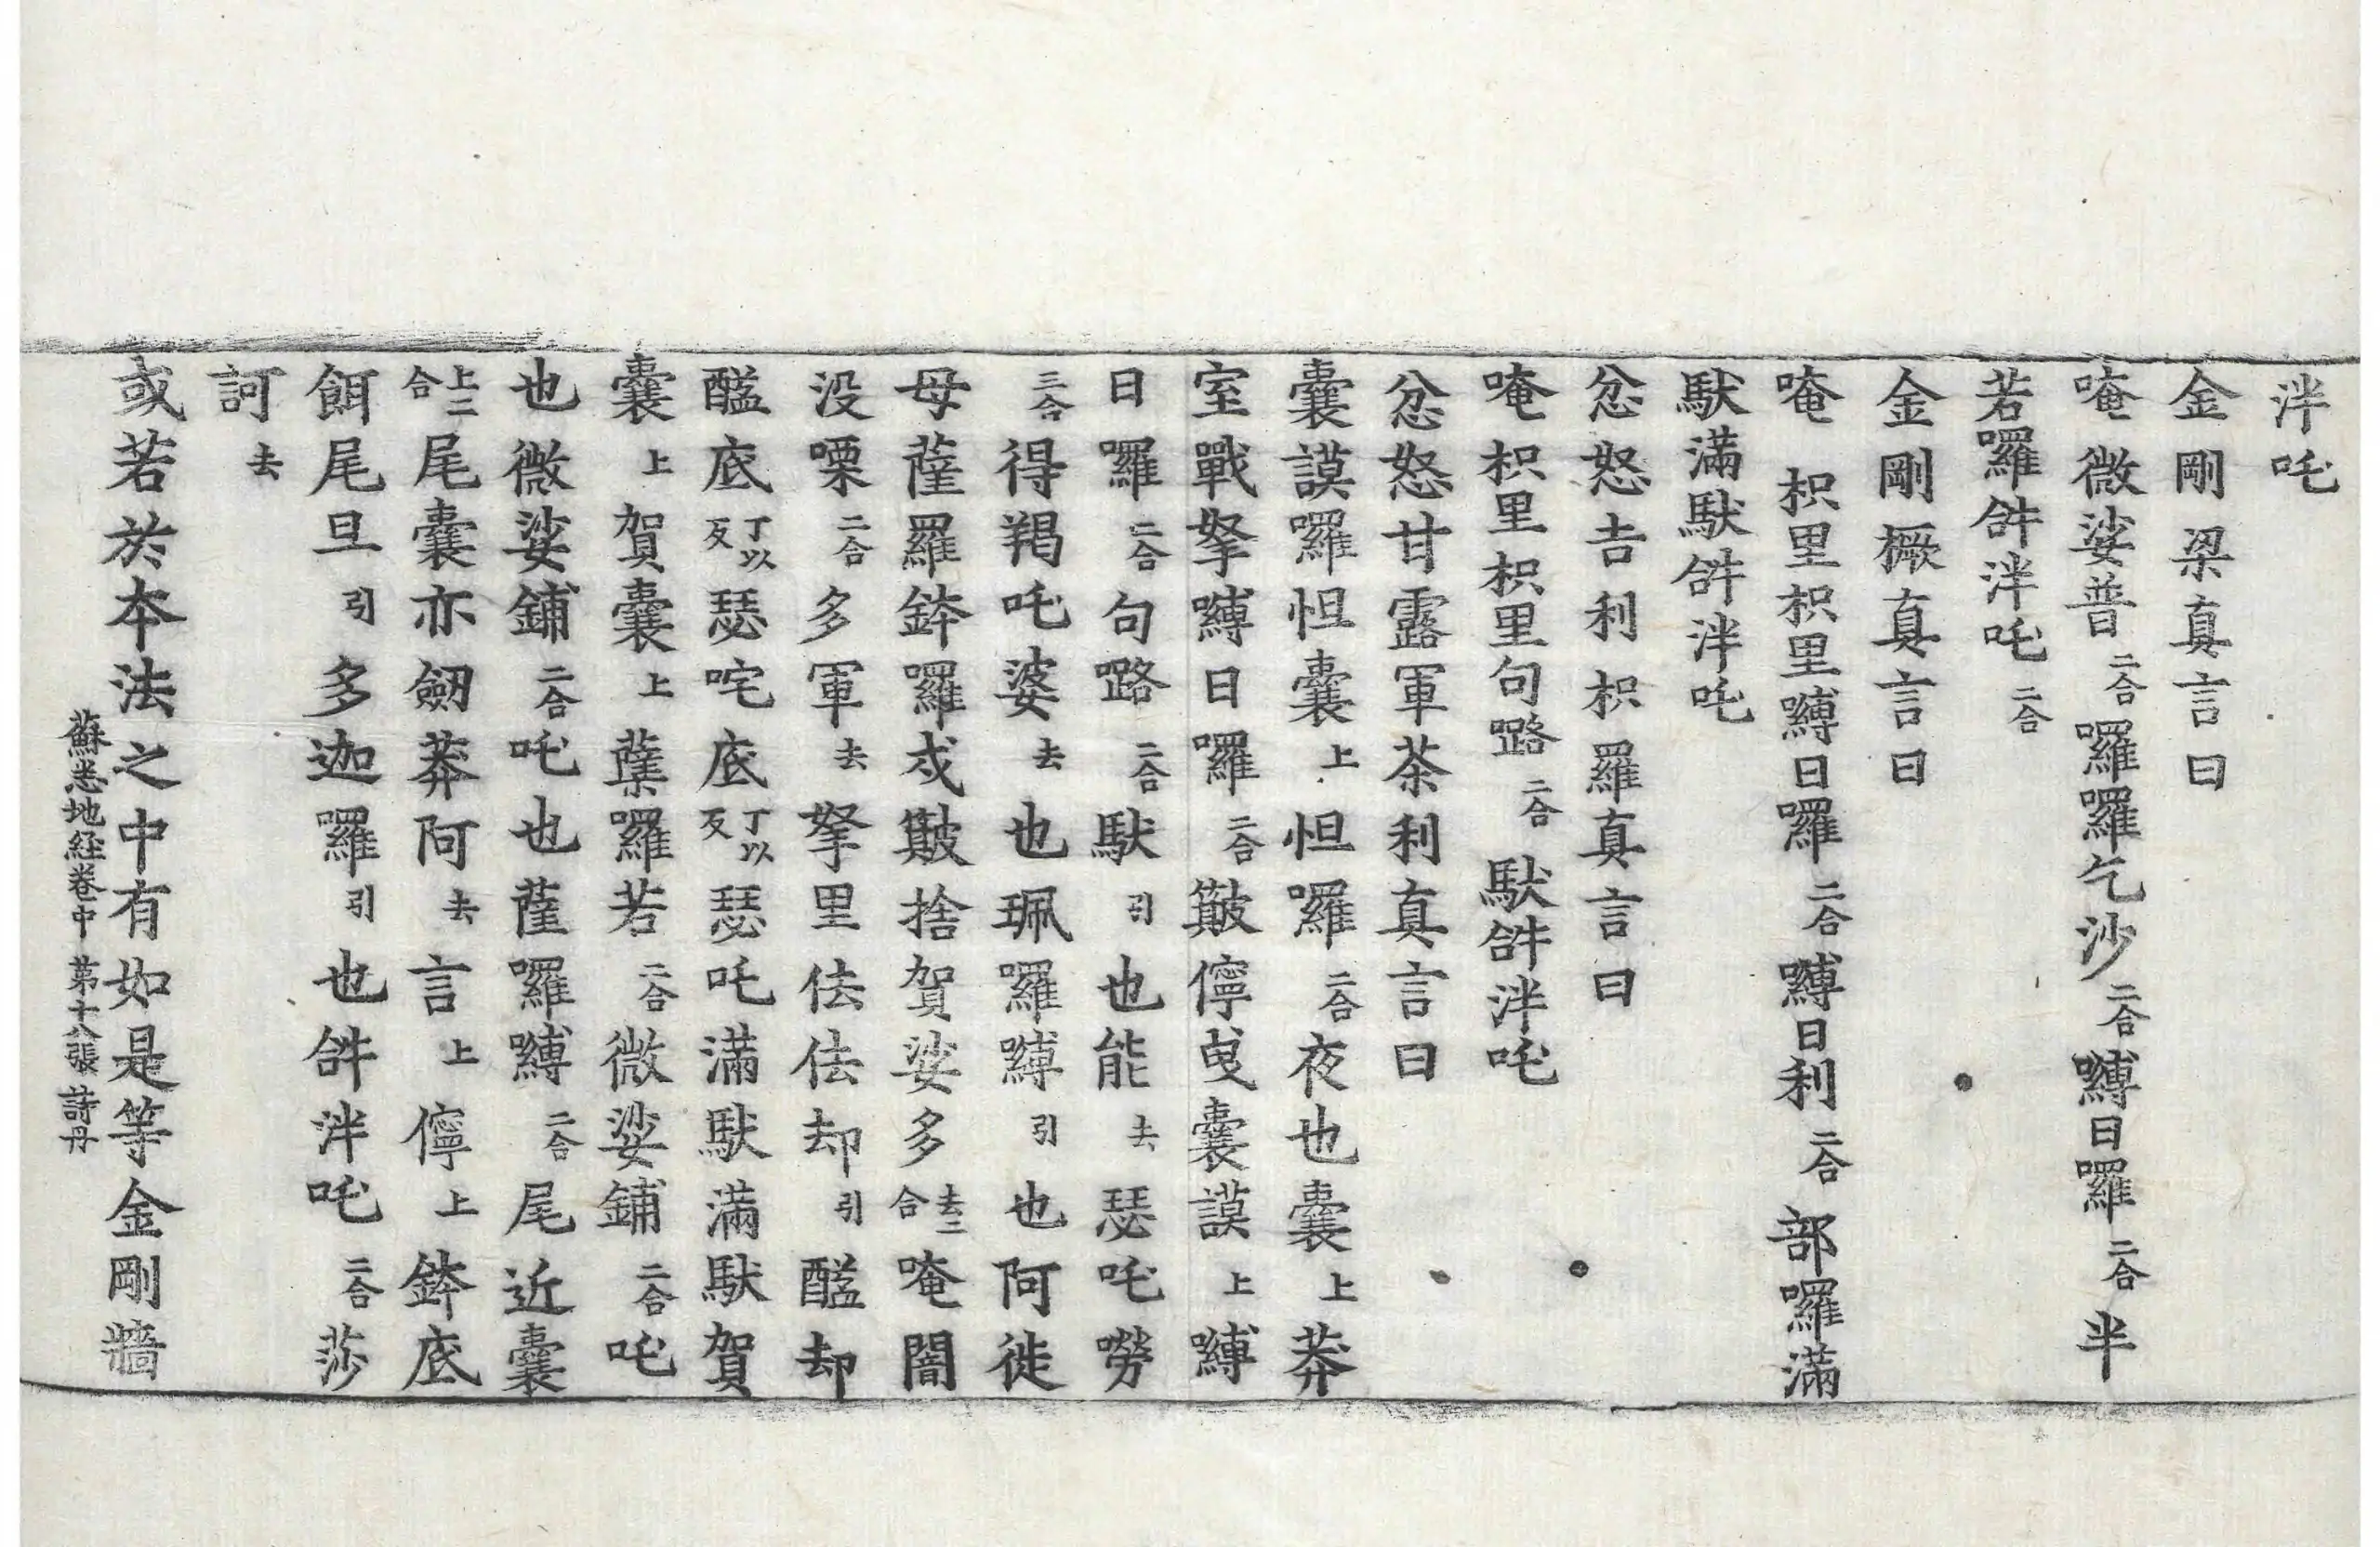 泮吒
金剛梁真言曰
唵微娑普二合囉囉乞沙二合嚩日囉二合半
若囉𤙖泮吒二合
金剛橛真言曰
唵枳里枳里嚩日囉二合嚩日利二合部囉滿
馱滿馱𤙖泮吒
忿怒吉利枳羅真言曰
唵枳里枳里句𡀔二合馱𤙖泮吒
忿怒甘露軍荼利真言曰
囊謨囉怛囊上怛囉二合夜也囊上莽
室戰拏嚩日囉二合簸儜曳囊謨上嚩
日囉二合句𡀔二合馱引也能去瑟吒嘮
三合得羯吒婆去也珮囉嚩引也阿徙
母薩羅鉢囉戍簸捨賀娑多去二合唵闇
没㗚二合多軍去拏里佉佉却引醯却
醯底丁以反瑟咤底丁以反瑟吒滿馱滿馱賀
囊上賀囊上蘖囉若二合微娑鋪二合吒
也微娑鋪二合吒也薩囉嚩二合尾近囊
上二合尾囊亦劒莽阿去言上儜上鉢底
餌尾旦引多迦囉引也𤙖泮吒二合莎
訶去
或若於本法之中有如是等金剛牆
蘇悉地経卷中 苐十八張 詩丹